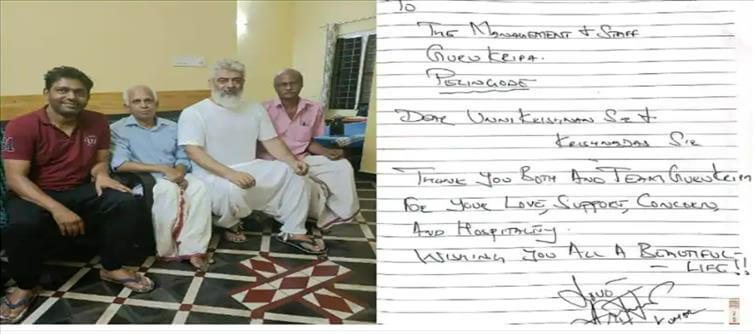 To
THE MANAGEMENT & STAFF
GURUKRIPA.
PELINGODE
DEAR UNNIKRISHNAN SIR &
KRISHNADAS SIR
THANK YOU BOTH AND TEAM GURUKRIPA
FOR YOUR LOVE, SUPPORT, CONCERN,
AND HOSPITALITY.
WISHING YOU ALL A BEAUTIFUL –
– LIFE!!
Love